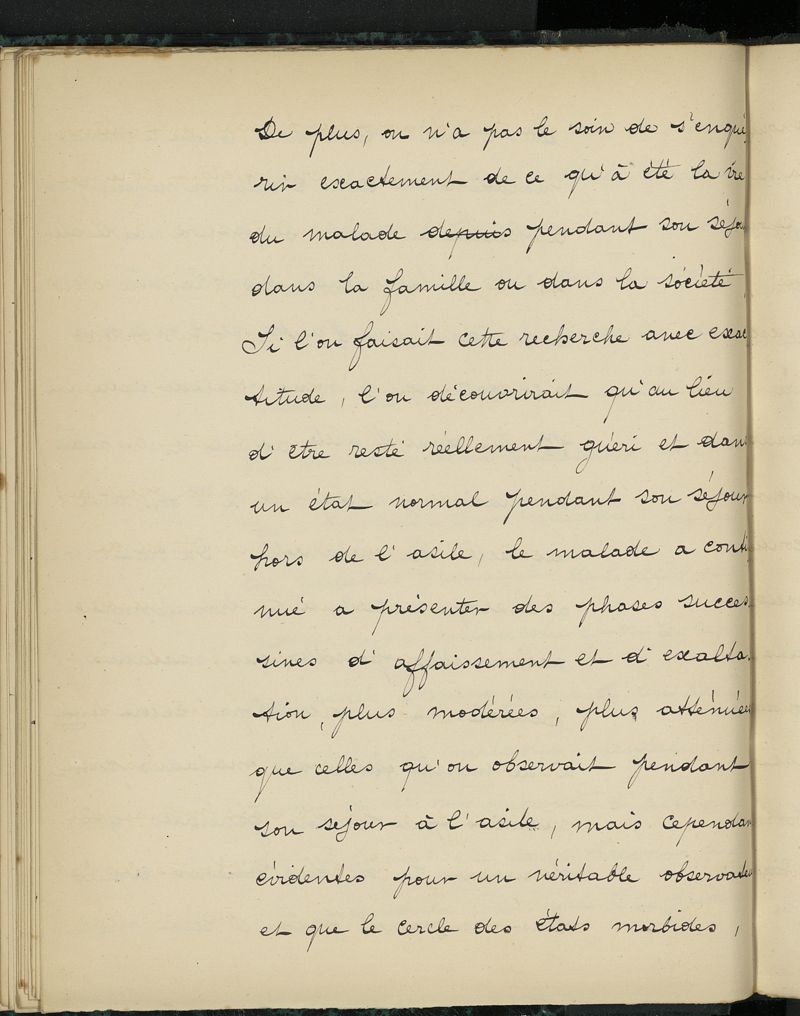 De plus, on n'a pas le soin de s'enqué
rir exactement de ce qu'à été la vie
du malade depuis pendant son séjour
dans la famille ou dans la société.
Si l'on faisait cette recherche avec exac
titude, l'on découvrirait qu'au lieu
d'être resté réellement guéri et dans
un état normal pendant son séjour
hors de l'asile, le malade a conti
nué a présenter des phases succes
sives d'affaissement et d'exalta
tion, plus modérées, plus atténuées
que celles qu'on observait pendant
son séjour à l'asile, mais cependant
évidentes pour un véritable observateur
et que le cercle des états morbides,